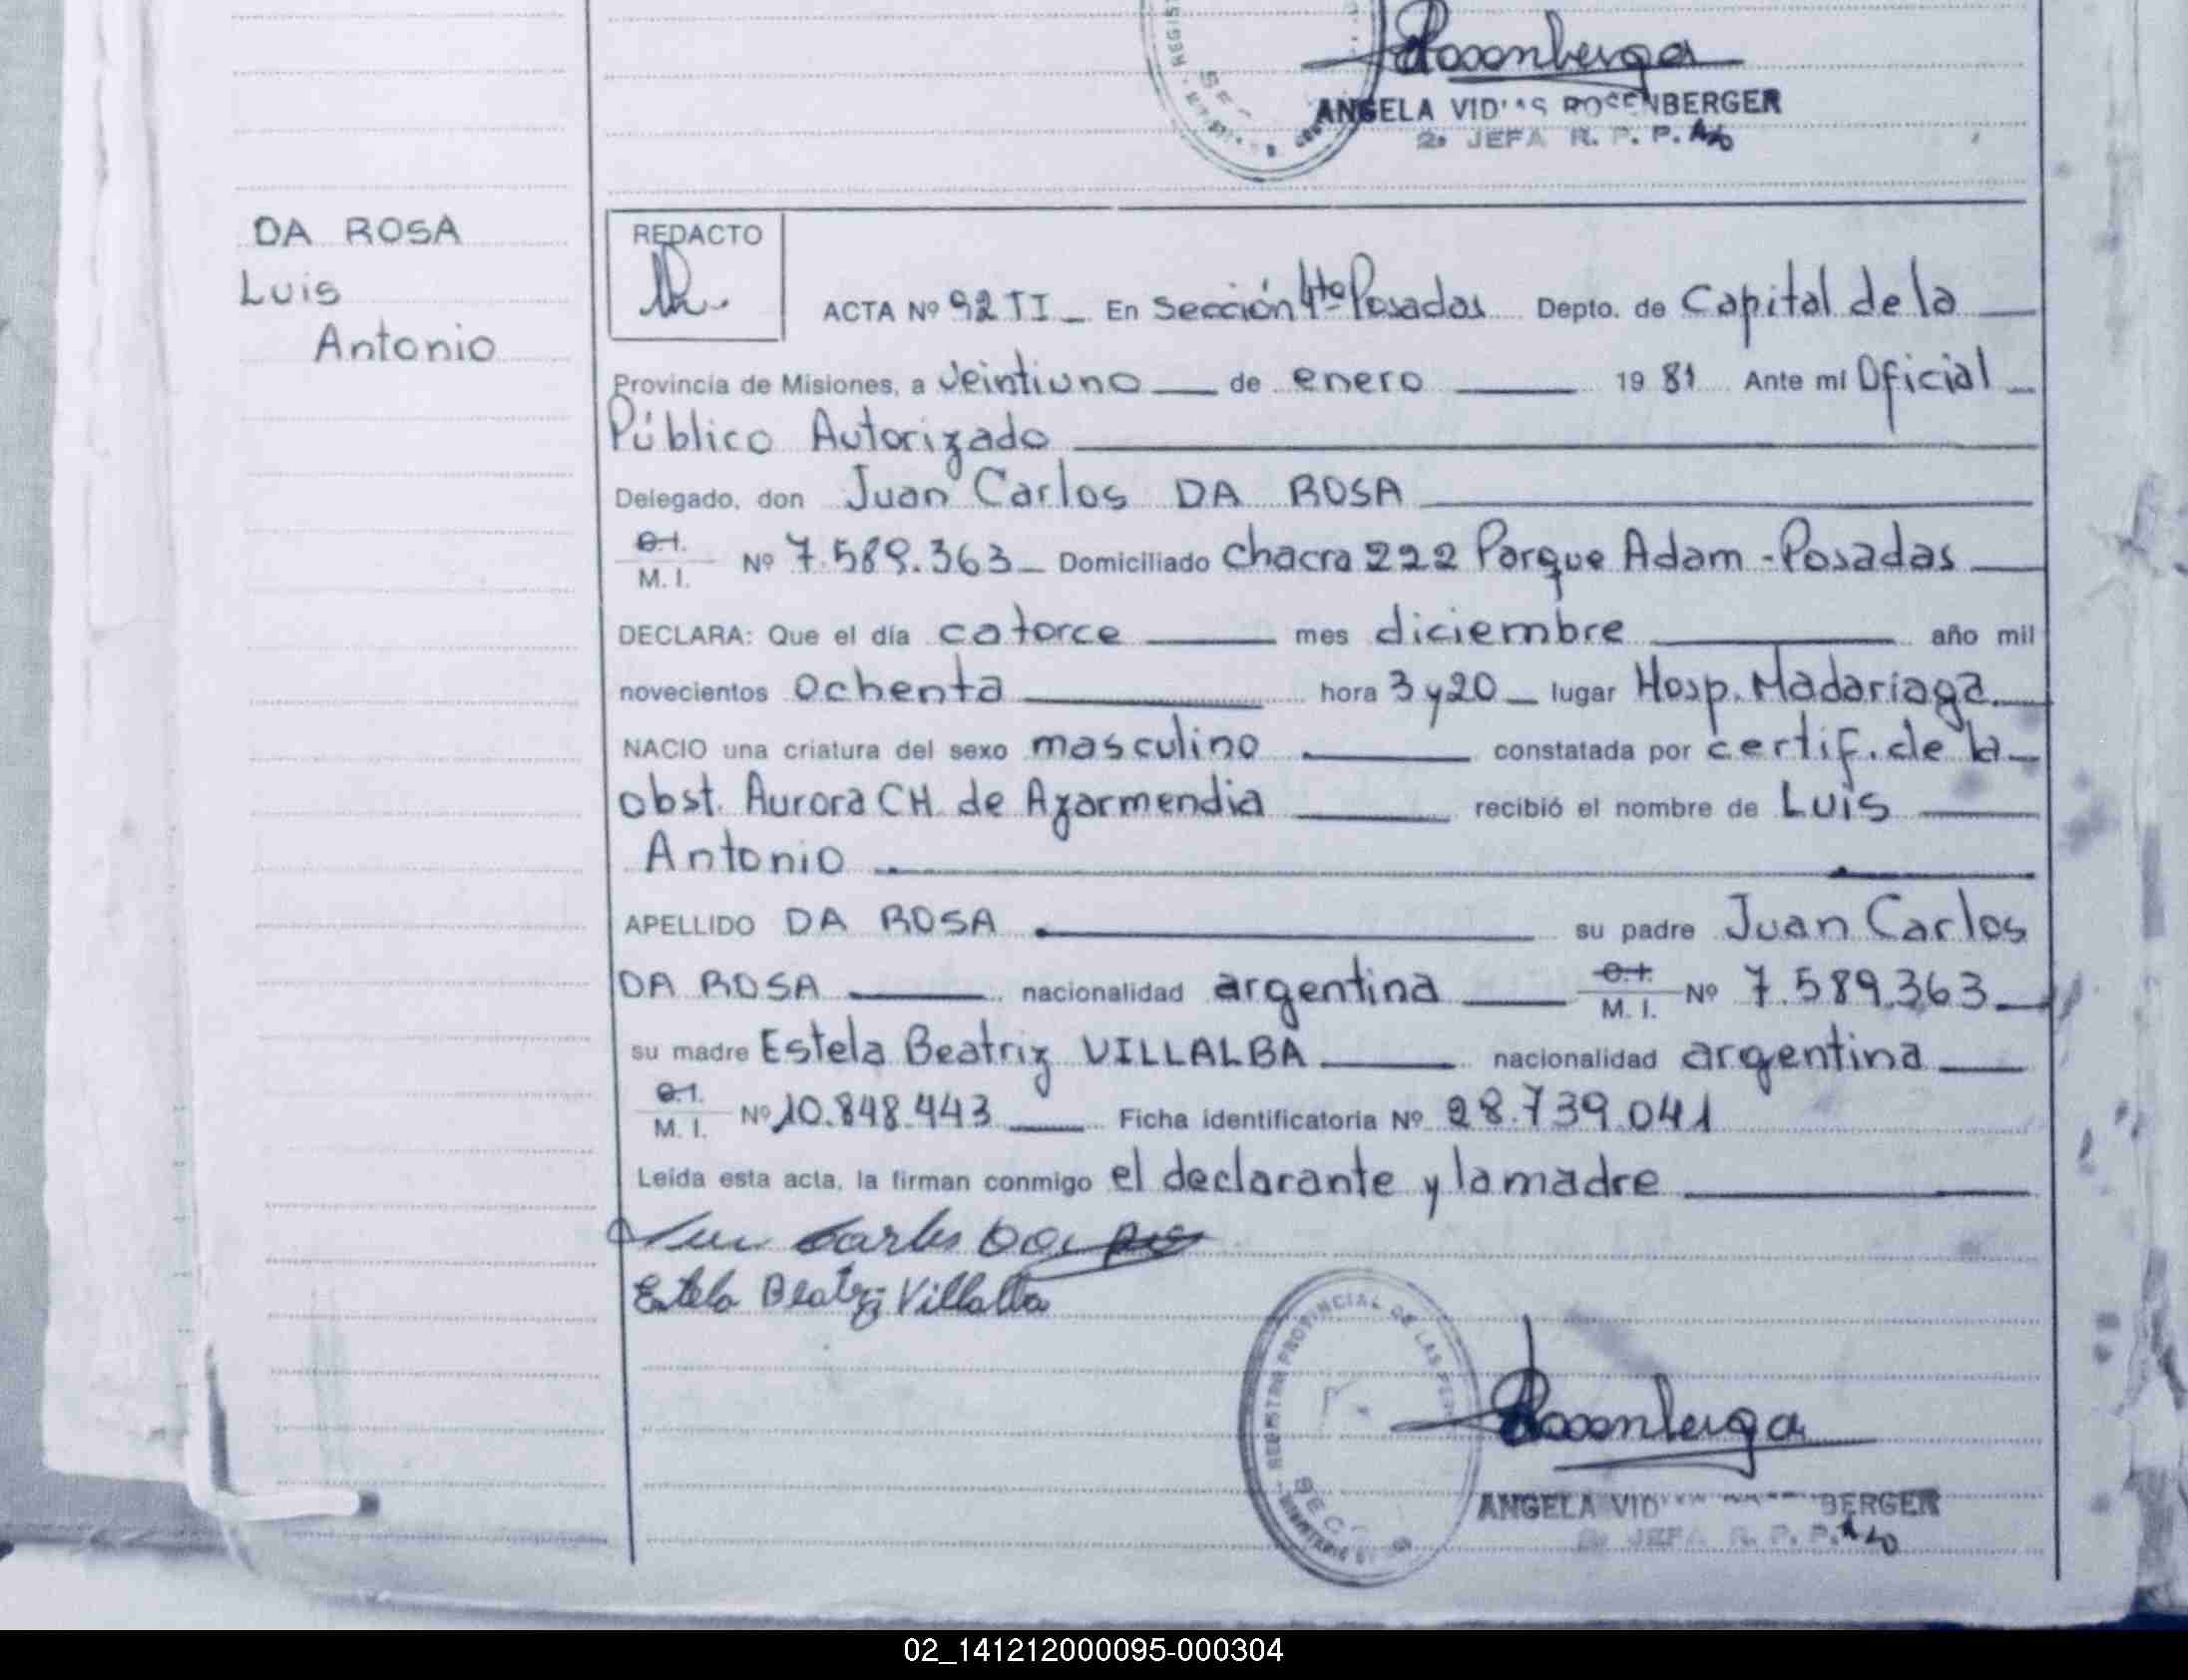 Rosenberga
ANGELA VID ROSENBERGER
2ª JEFA R. P. P.
DA ROSA
Luis
Antonio
REDACTO
ACTA Nº 92 TI En Sección 4ta Posadas Depto. de Capital de la
Provincia de Misiones, a veintiuno de enero 1981 Ante mi Oficial
Público Autorizado
Delegado, don Juan Carlos DA ROSA
C.I. M. I. Nº 7.589.363 Domiciliado chacra 222 Parque Adam - Posadas
DECLARA: Que el día catorce mes diciembre año mil
novecientos ochenta hora 3 y 20 lugar Hosp. Madariaga
NACIO una criatura del sexo masculino constatada por certif. de la
obst. Aurora CH. de Azarmendia recibió el nombre de Luis
Antonio
APELLIDO DA ROSA su padre Juan Carlos
DA ROSA nacionalidad argentina C.I. M. I. Nº 7.589.363
su madre Estela Beatriz VILLALBA nacionalidad argentina
C.I. M. I. Nº 10.848.443 Ficha identificatoria Nº 28.739.041
Leída esta acta, la firman conmigo el declarante y la madre
Juan Carlos Da Rosa
Estela Beatriz Villalba
REGISTRO PROVINCIAL DE LAS PER
SECC
Rosenberga
ANGELA VID BERGER
2ª JEFA R. P. P.
02_141212000095-000304